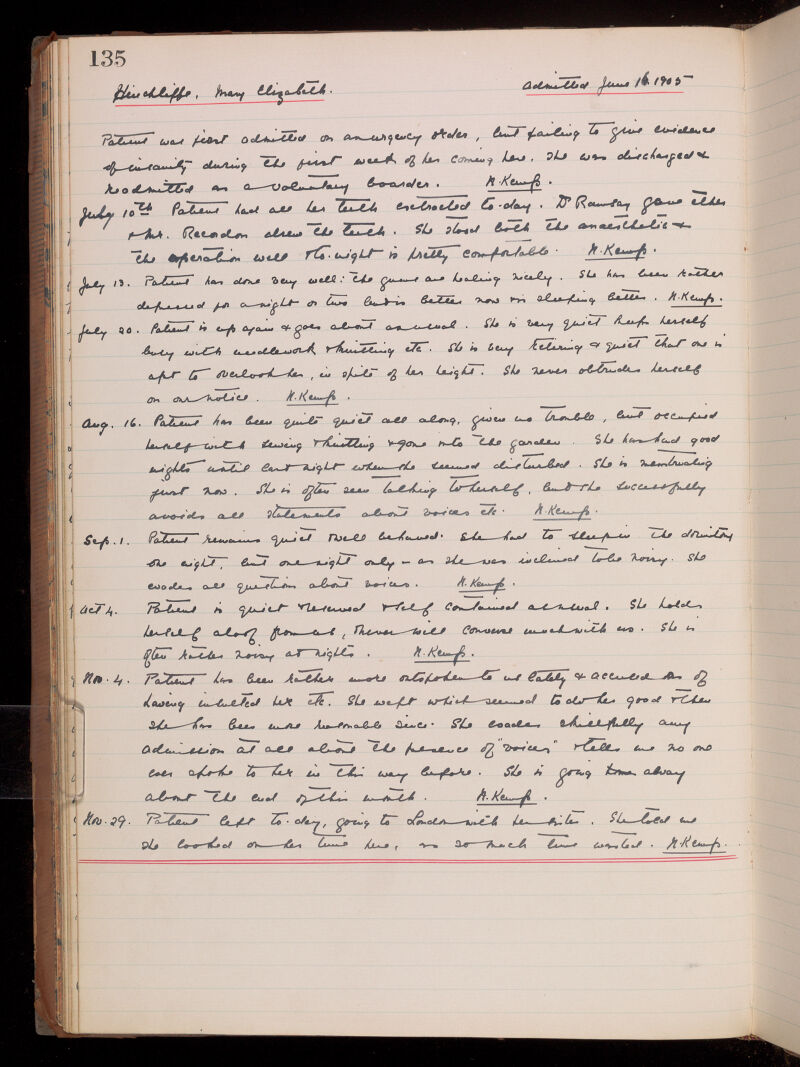 135
Hinchliffe, Mary Elizabeth. Admitted June 16 1905
Patient was first admitted on an urgency order, but failing to give evidence
of insanity during the first week of her coming here. She was discharged &
readmitted as a voluntary boarder. N. Kemp.
July 10th Patient had all her teeth extracted to-day. Dr Ramsay gave ether
& Mr. Recordon drew the teeth. She stood both the anaesthetic &
the operation well & to-night is pretty comfortable. N. Kemp.
July 13. Patient has done very well: the gums are healing nicely. She has been rather
depressed for a night or two but is better now & is sleeping better. N. Kemp.
July 20. Patient is up again & goes about as usual. She is very quiet keeps herself
busy with needlework & knitting etc. She is very retiring & quiet that one is
apt to overlook her, in spite of her height. She never obtrudes herself
on our notice. N. Kemp.
Aug. 16. Patient has been quite quiet all along, given no trouble, but occupied
herself with sewing & knitting & gone into the garden. She has had good
nights until last night when she seemed disturbed. She is menstruating
just now. She is often seen talking to herself, but she successfully
avoids all statements about voices etc. N. Kemp.
Sep. 1. Patient remains quiet & well behaved. She had to sleep in the dormitory
one night, but one night only - as she was inclined to be noisy. She
evades all questions about voices. N. Kemp.
Oct 4. Patient is quiet & reserved & self contained as usual. She holds
herself aloof from us, & never will converse much with us. She is
often rather noisy at nights. N. Kemp.
Nov. 4. Patient has been rather more outspoken to us lately & accused us of
having insulted her etc. She wept which seemed to do her good & then
she has been more reasonable since. She evades skilfully any
admission at all about the presence of "voices" & tells me no one
ever spoke to her in this way before. She is going away
about the end of this month. N. Kemp.
Nov. 29. Patient left to-day, going to London with her sister. She told me
she looked on her time here, as so much time wasted. N. Kemp.